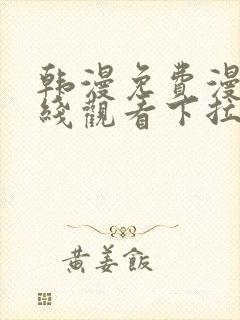 韩漫免費漫
綫觀看下拉
黄姜飯